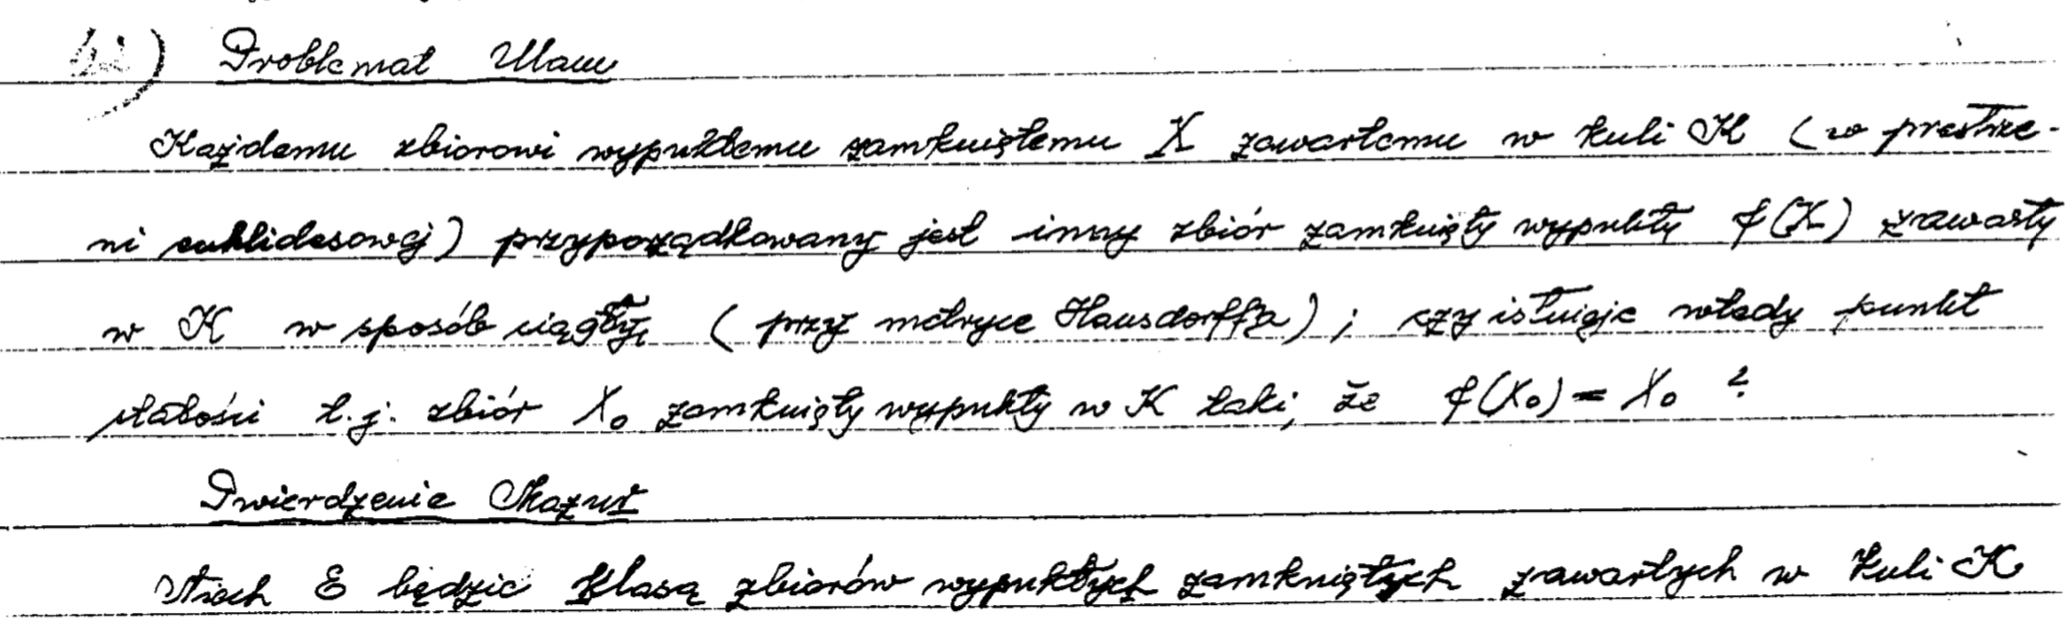 Problemat Ulam
Każdemu zbiorowi wypukłemu zamkniętemu X zawartemu w kuli K (w przestrze-
ni euklidesowej) przyporządkowany jest inny zbiór zamknięty wypukły f(X) zawarty
w K w sposób ciągły (przy metryce Hausdorffa); czy istnieje wtedy punkt
stałości t.j. zbiór X₀ zamknięty wypukły w K taki, że f(X₀) = X₀ ?
Twierdzenie Mazur
Niech E będzie klasą zbiorów wypukłych zamkniętych zawartych w kuli K